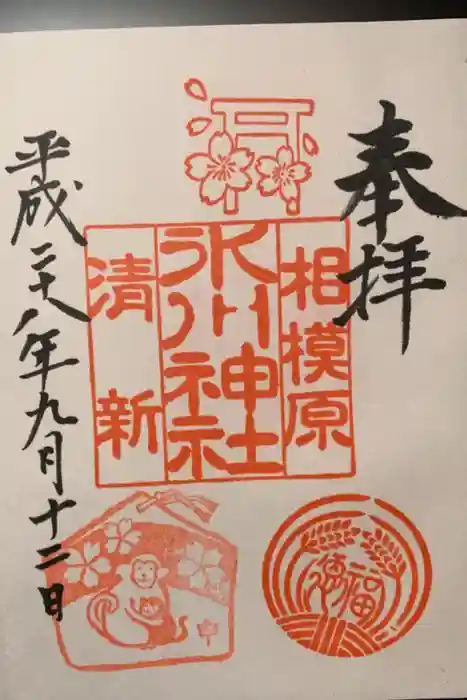 奉拝
相模原
氷川神社
清新
平成二十八年九月十二日
福徳